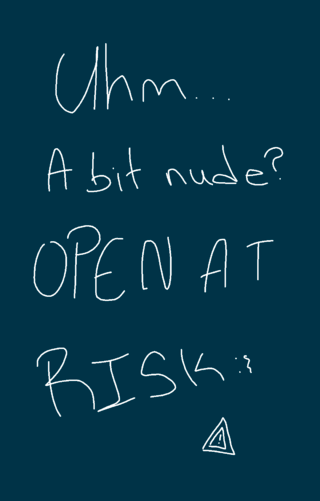 Uhm...
A bit nude?
OPEN AT
RISK :3
!